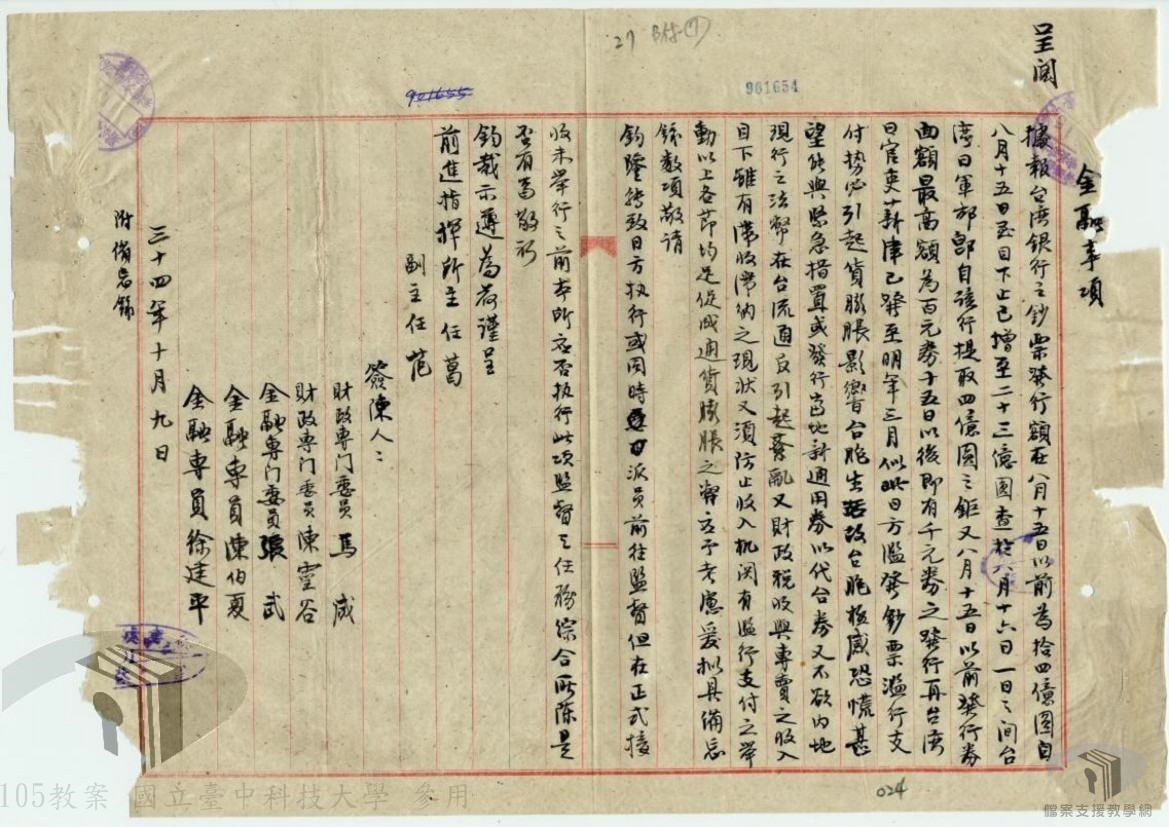 27 附(7)
901654
901655
呈閱
金融事項
據報台灣銀行之鈔票發行額在八月十五日以前為拾四億圓自
八月十五日至目下止已增至二十三億圓查於八月十六日一日之間台
灣日軍部即自該行提取四億圓之鉅又八月十五日以前發行券
面額最高額為百元券十五日以後即有千元券之發行再台灣
日官吏薪津已發至明年三月似此日方濫發鈔票濫行支
付勢必引起貨膨脹影響台胞生活故台胞極感恐慌甚
望能與緊急措置或發行當地新通用券以代台券又不欲內地
現行之法幣在台流通反引起紊亂又財政稅收與專賣之收入
目下雖有滯收滯納之現狀又須防止收入机関有濫行支付之舉
動以上各節均足促成通貨膨脹之弊應予考慮爰拟具備忘
錄數項敬請
鈞鑒轉致日方执行或同時派員前往監督但在正式接
收未举行之前本所應否执行此項監督之任務綜合所陳是
否有當敬祈
鈞裁示遵為荷謹呈
前進指揮所主任葛
副主任范
簽陳人：
財政專门委員 馬咸
財政專门委員 陳靈谷
金融專门委員 張武
金融專員 陳伯夏
金融專員 徐建平
三十四年十月九日
附備忘錄
024
105教案 國立臺中科技大學 參用
檔案支援教學網